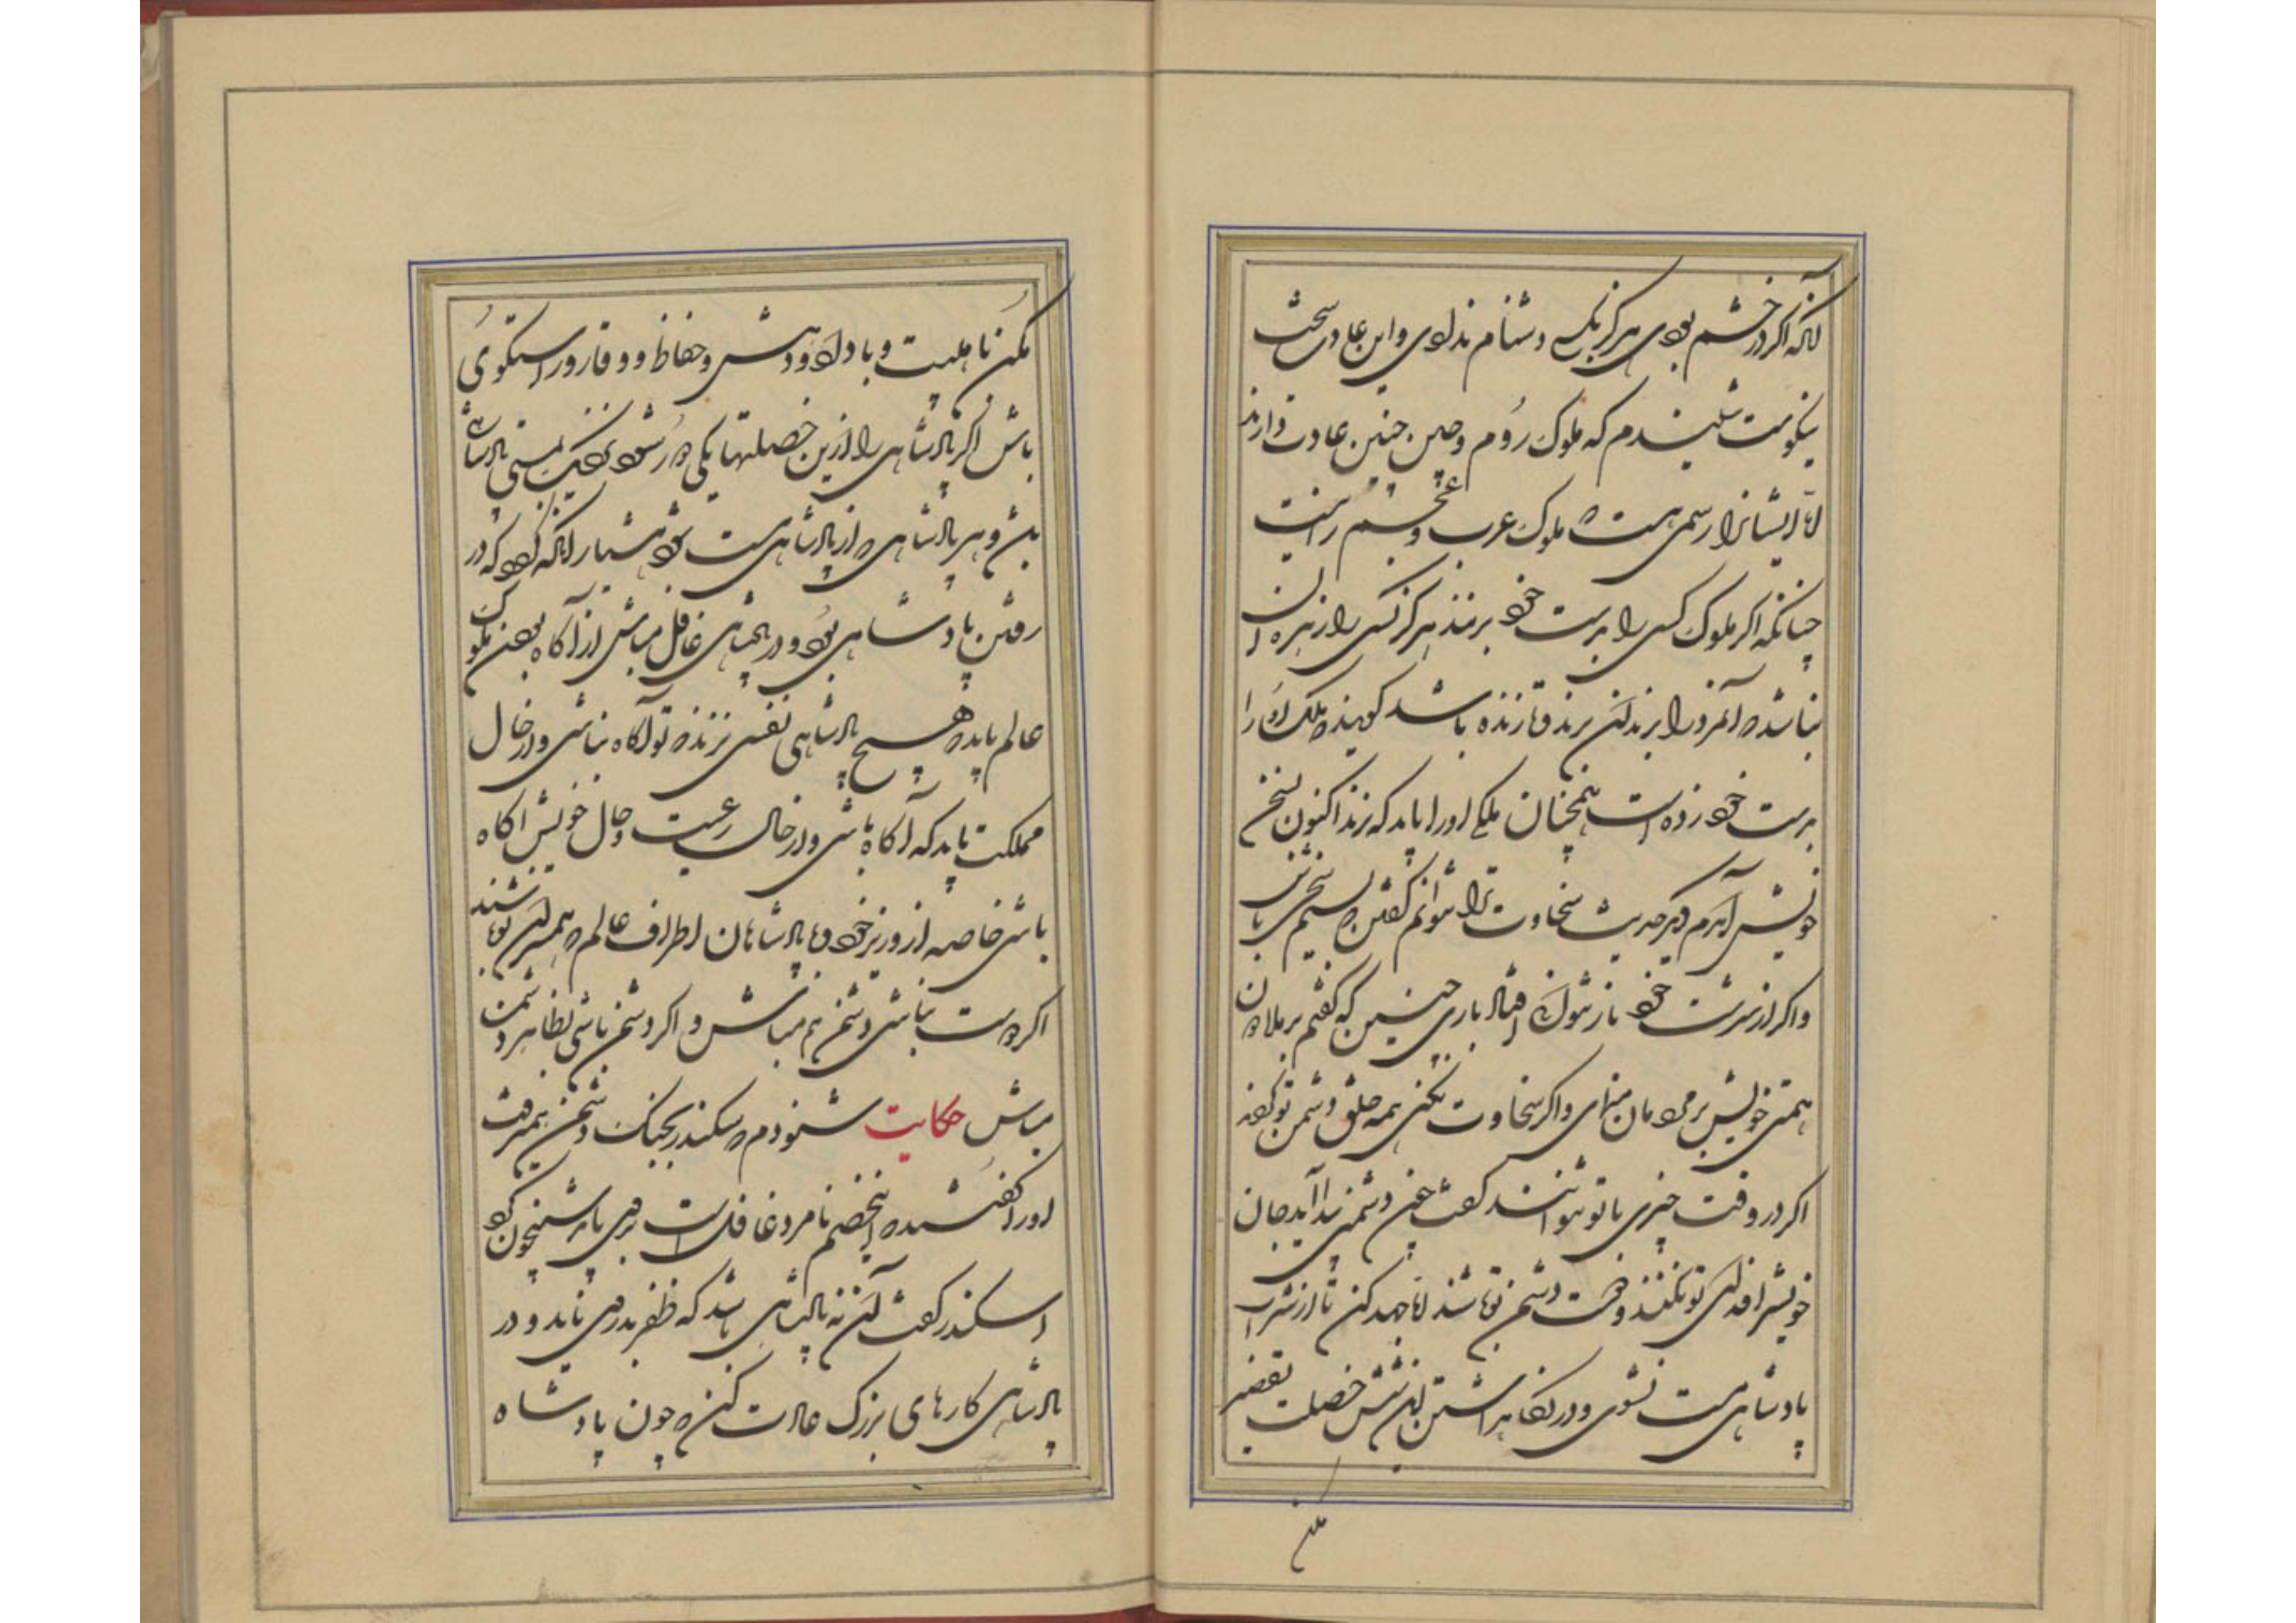 آنکه اکر در خشم بودی هرکز بکسی دشنام ندادی و این عادتی سخت
نیکوست شنیدم که ملوک روم و چین چنین عادت دارند
اما ایشانرا رسمی هست که ملوک عرب و عجم را نیست
چنانکه اکر ملوک کسی را بدست خود بزنند هرکز کسی را زهره آن
نباشد که آنمرد را بزند و تا زنده باشد کویند که ملک او را
بدست خود زده است همچنان ملکی او را باید که زند اکنون بسخن
خویش آمدم دیکر حدیث سخاوت ترا نتوانم کفتن که بستم سخی باش
و اکر از سرشت خود باز نتوان باری چنین که کفتم بر ملا دون
همتی خویش بر مردمان منمای و اکر سخاوت نکنی همه خلق دشمن تو کردند
اکر در وقت چیزی با تو نتوانند کفت چون دشمنی پیدا آید جان
خویش فدای تو نکنند و دشمن تو باشند اما جهد کن تا از شراب
پادشاهی مست نشوی و در نکاهداشتن این شش خصلت تقصیر
مکن
مکن تا هیبت و با داد و دهش و حفاظ و وقار و راستکوی
باش اکر پادشاهی را از این خصلتها یکی دور شود نزدیک بمستی پادشاهی
بدش و هر پادشاهی که از پادشاهی مست شود هشیار آنکه کردد که در
رفتن پادشاهی بود و در پادشاهی غافل مباش از آکاه بودن ملوک
عالم باید که هیچ پادشاهی نفسی نزند که تو آکاه نباشی و از حال
مملکت باید که آکاه باشی و از حال رعیت و حال خویش آکاه
باشی خاصه از وزیر خود و پادشاهان اطراف عالم که همسران تو باشند
اکر دوست نباشی دشمن هم مباش و اکر دشمن باشی بظاهر دشمن
مباش حکایت شنودم که اسکندر بجنک دشمن همیرفت
او را کفتند که این خصم نامرد غافل است بر وی باید شبیخون کرد
اسکندر کفت آن نه پادشاهی باشد که ظفر بدزدی یابد و در
پادشاهی کارهای بزرک عادت کن که چون پادشاه